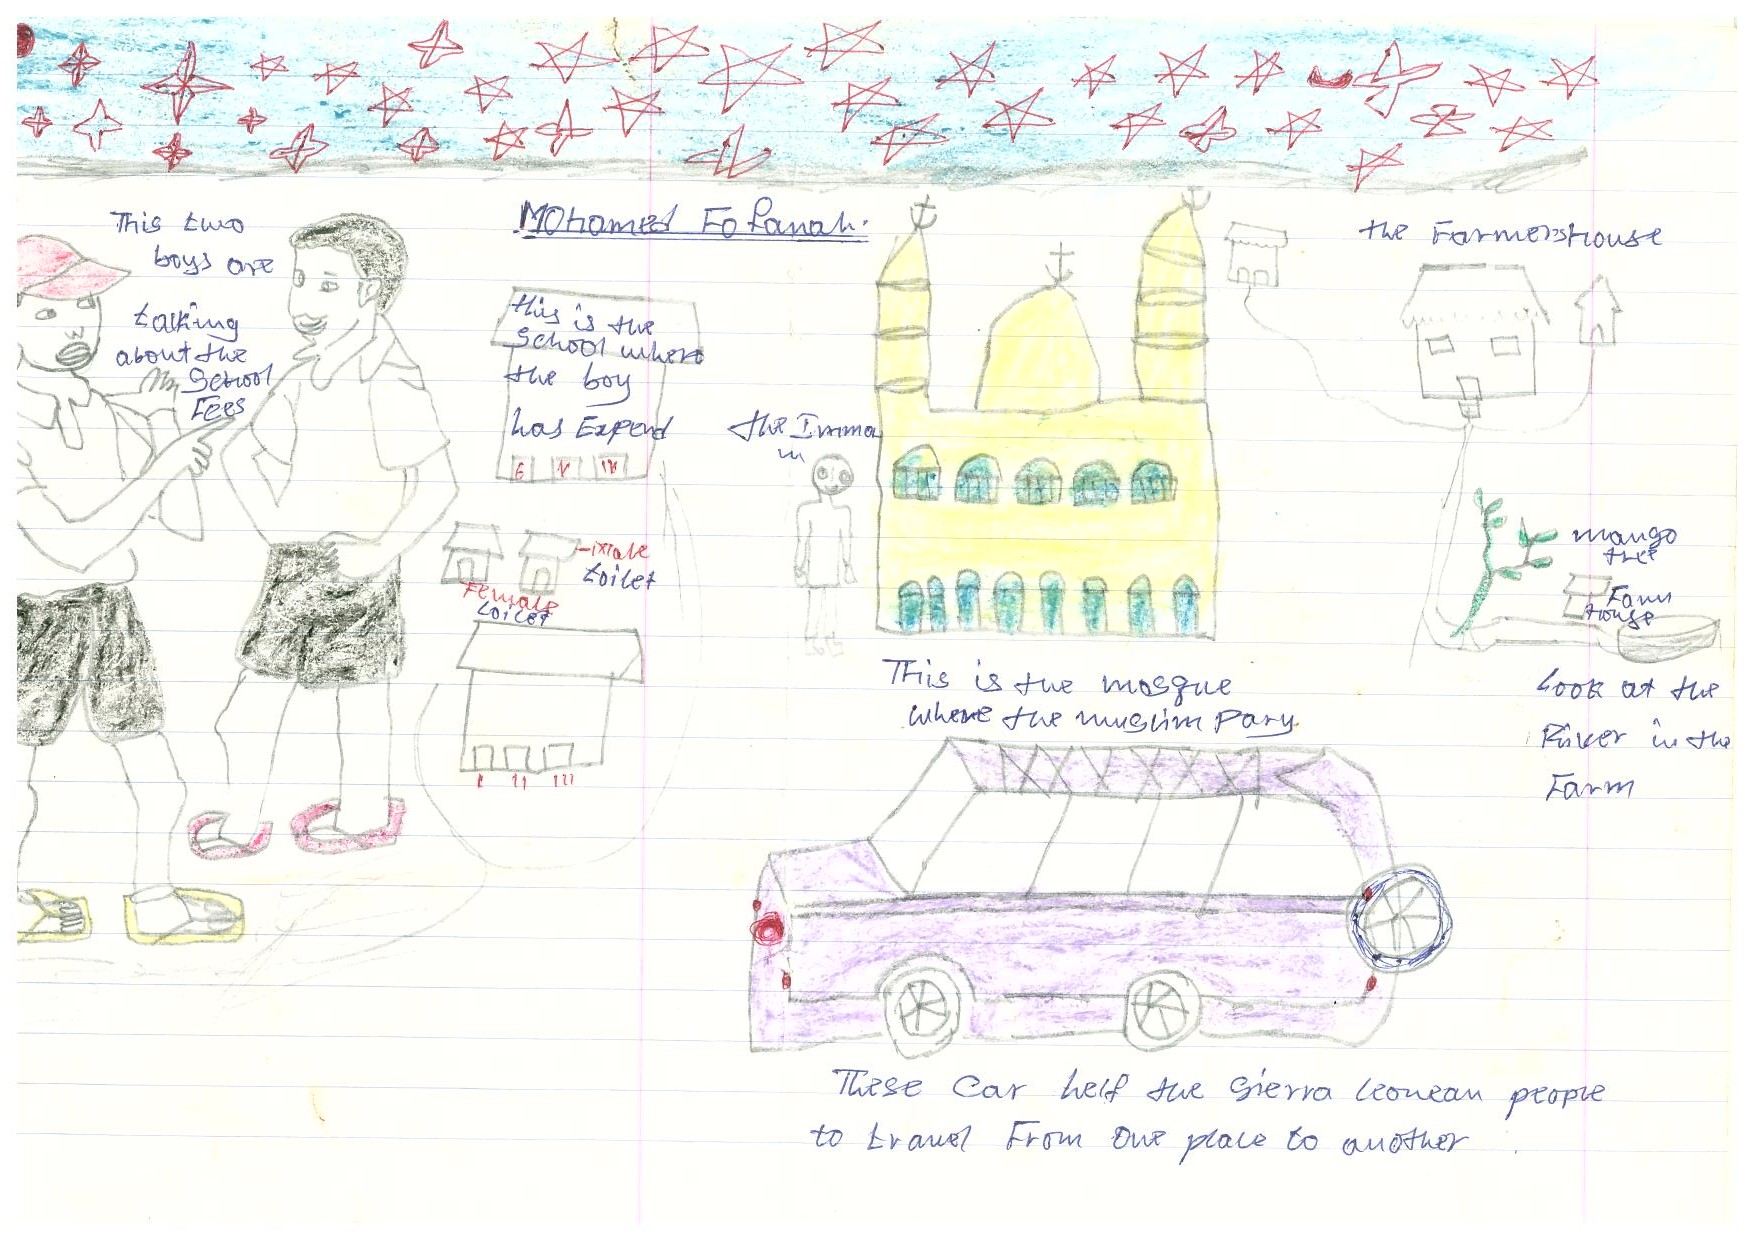 This two
boys are
talking
about the
School
Fees
Mohamed Fofanah.
this is the
School where
the boy
has Expend
E V IV
Male
toilet
Female
toilet
I II III
the Imma
m
This is the mosque
where the muslim Pary
the Farmers House
mango
tree
Farm
House
Look at the
River in the
Farm
These Car help the Sierra leonean people
to travel From one place to another.